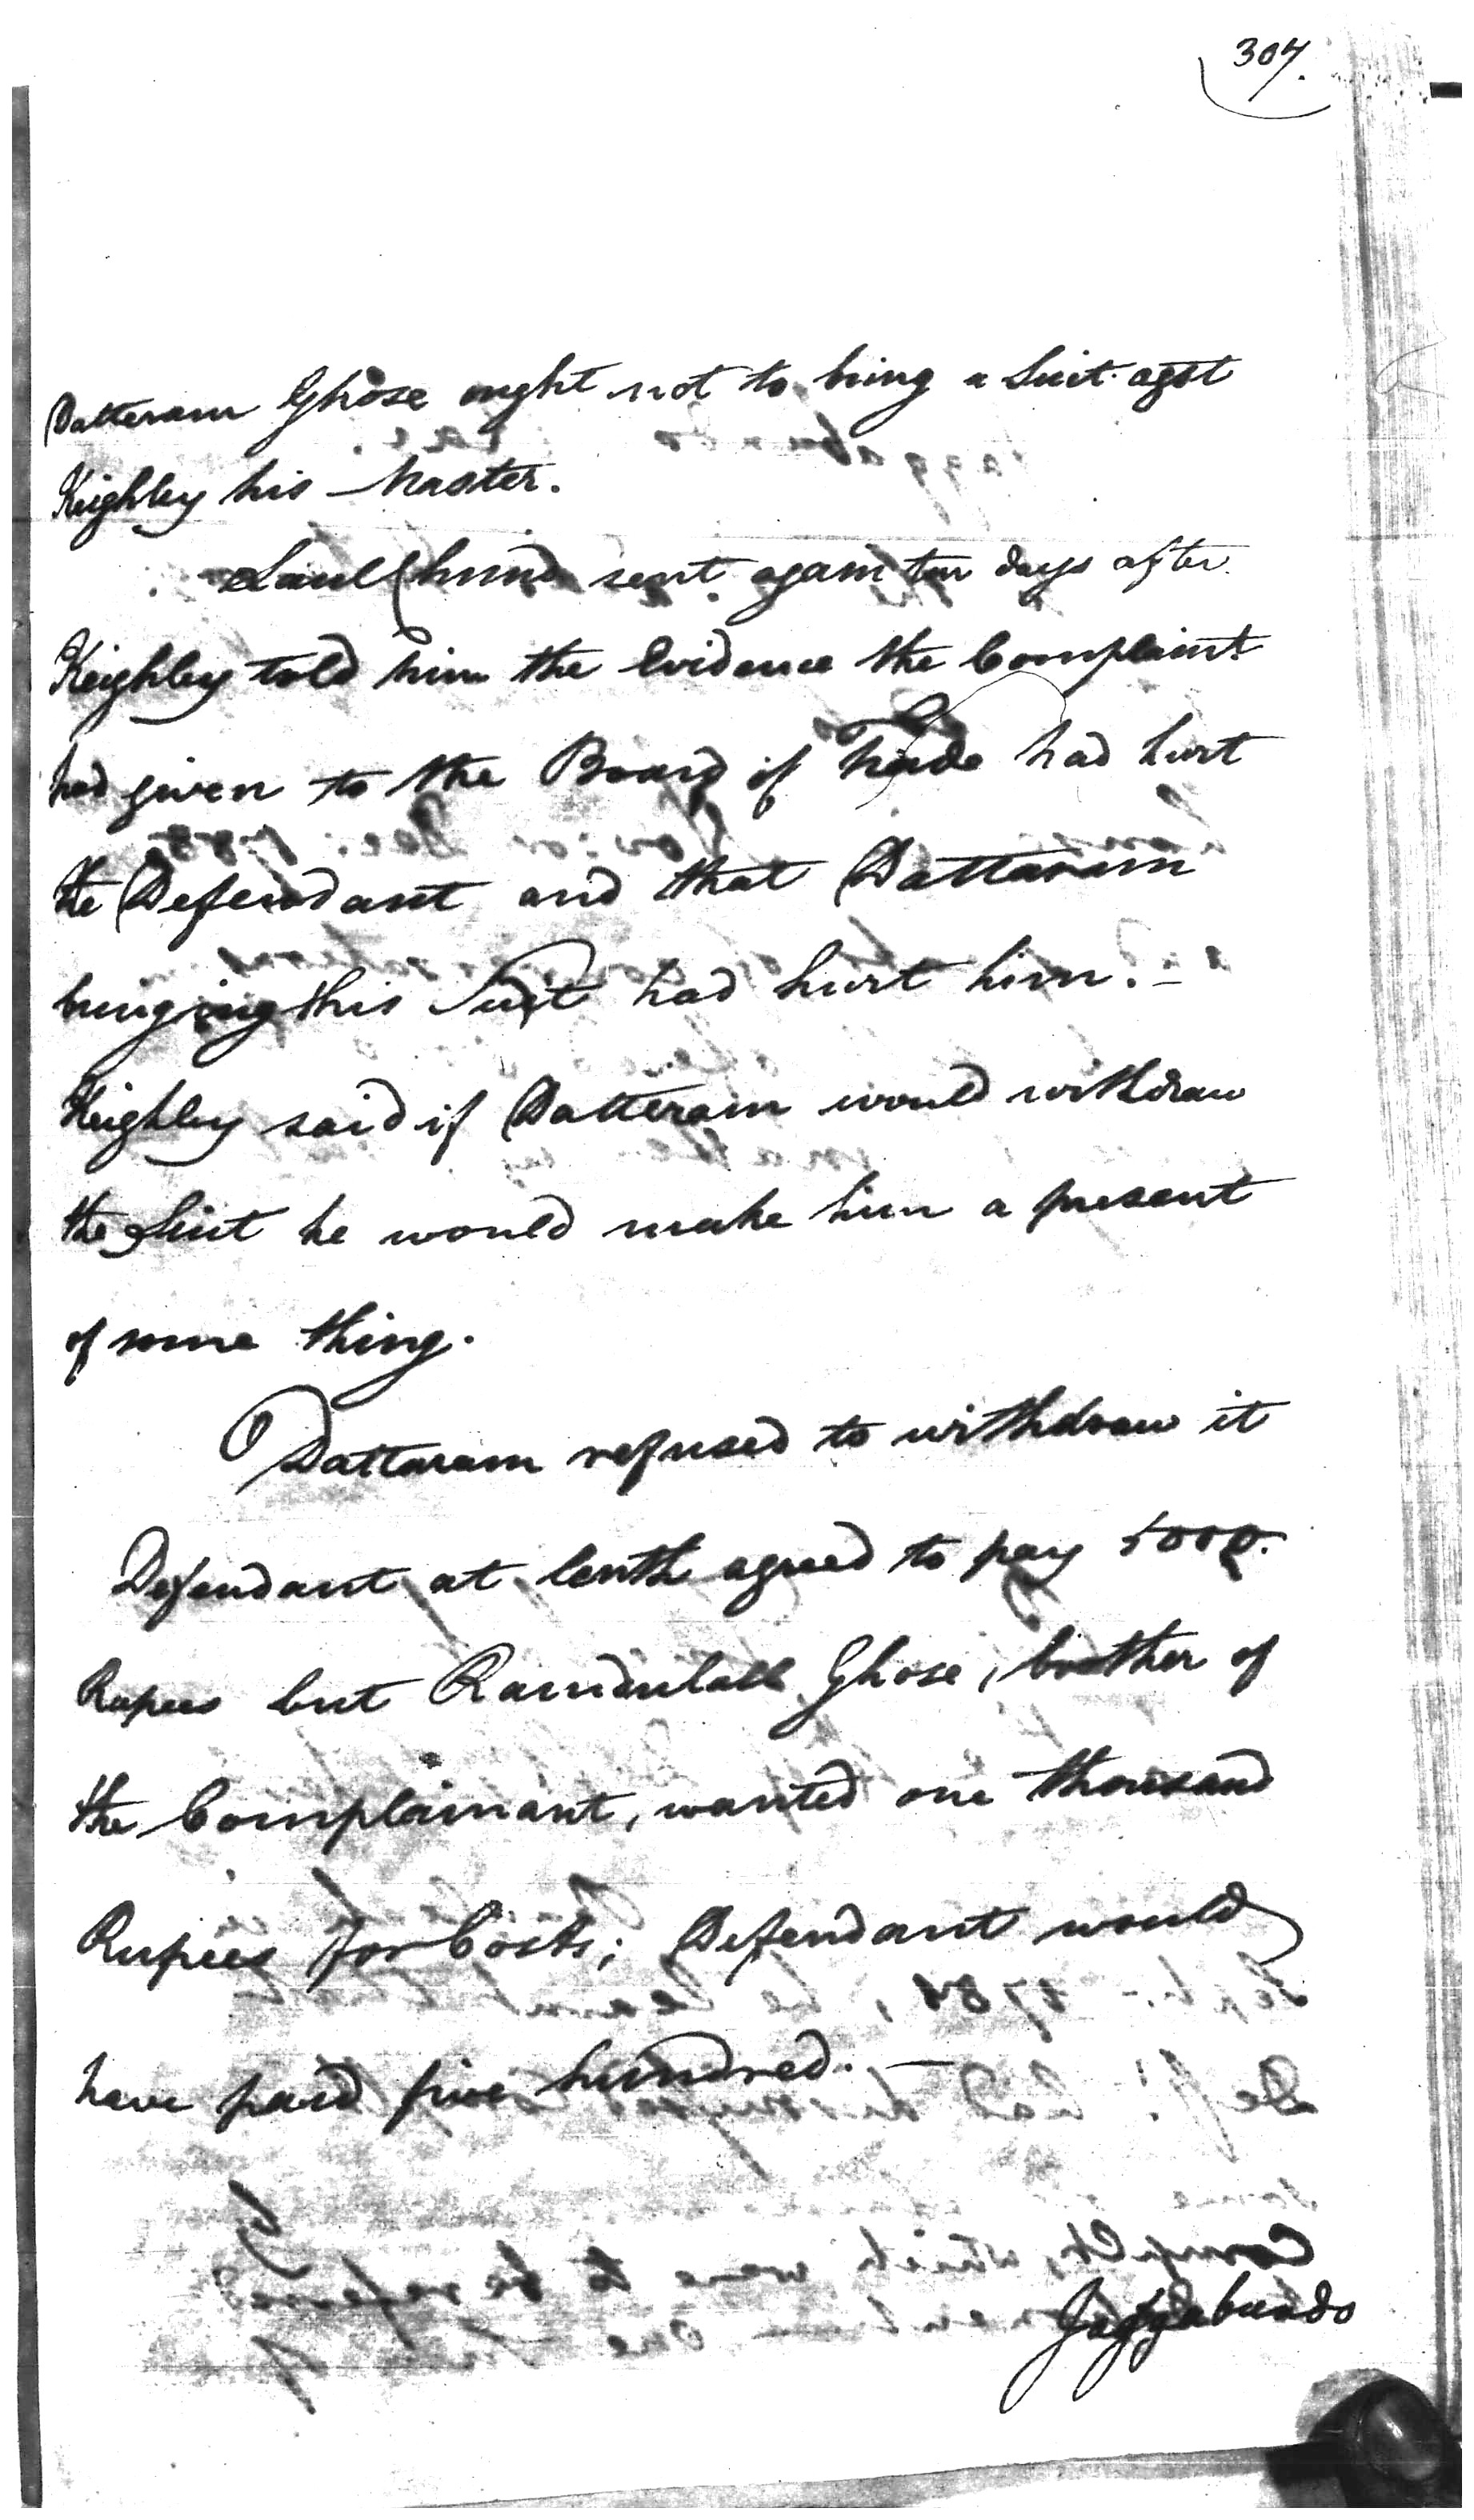 307.
Datteram Ghose ought not to bring a Suit agst
Keighley his Master.
Laull Chund sent again ten days after
Keighley told him the Evidence the Complaint
had given to the Board of Trade had hurt
the Defendant and that Dattaram
bringing this Suit had hurt him. -
Keighley said if Datteram would withdraw
the Suit he would make him a present
of some thing.
Dattaram refused to withdraw it
Defendant at lenth agreed to pay 5000.
Rupees but Ramdulall Ghose, brother of
the Complainant, wanted one thousand
Rupees for Costs; Defendant would
have paid five hundred. -
Jaggabundo